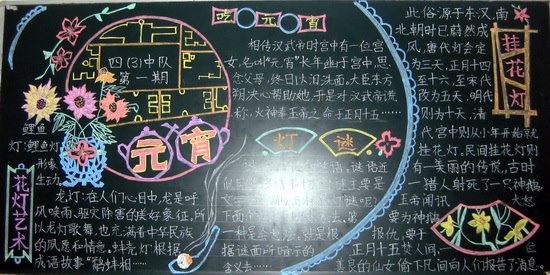 四(3)中队
第一期
元宵
鲤鱼
灯:鲤鱼灯
形象
生动
花灯艺术
龙灯:在人们心目中,龙是呼
风唤雨、驱灾降害的美好象征,所
以龙灯歌舞,也充满着中华民族
的夙愿和情意。蚌壳灯:根据
成语故事“鹬蚌相
吃元宵
相传汉武帝时宫中有一位宫
女,名叫“元宵”,长年幽于宫中,思
念父母,终日以泪洗面。大臣东方
朔决心帮助她,于是对汉武帝谎
称,火神奉玉帝之命于正月十五
灯谜
谜语
下面
一种
据谜面所暗示的
含义去
此俗源于东汉,南
北朝时已蔚然成
风,唐代灯会定
为三天,正月十四
至十六,至宋代
改为五天,明代
则为十天,清
代宫中则从小年开始就
挂花灯,民间挂花灯则
有一美丽的传说,古时
一猎人射死了一只神鹅
玉帝闻讯
大怒
要为神鹅
报仇,要于
正月十五焚人间,
善良的仙女偷下凡间向人们报告了消息。
挂花灯